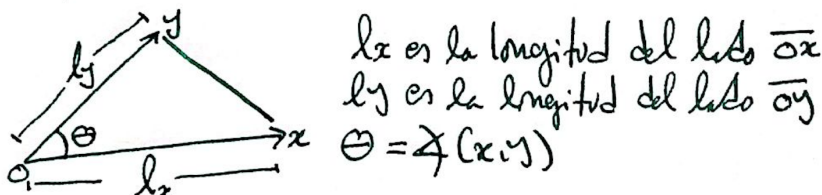 y
ly
θ
x
O
lx
lx es la longitud del lado \overline{ox}
ly es la longitud del lado \overline{oy}
θ = ∡(x,y)